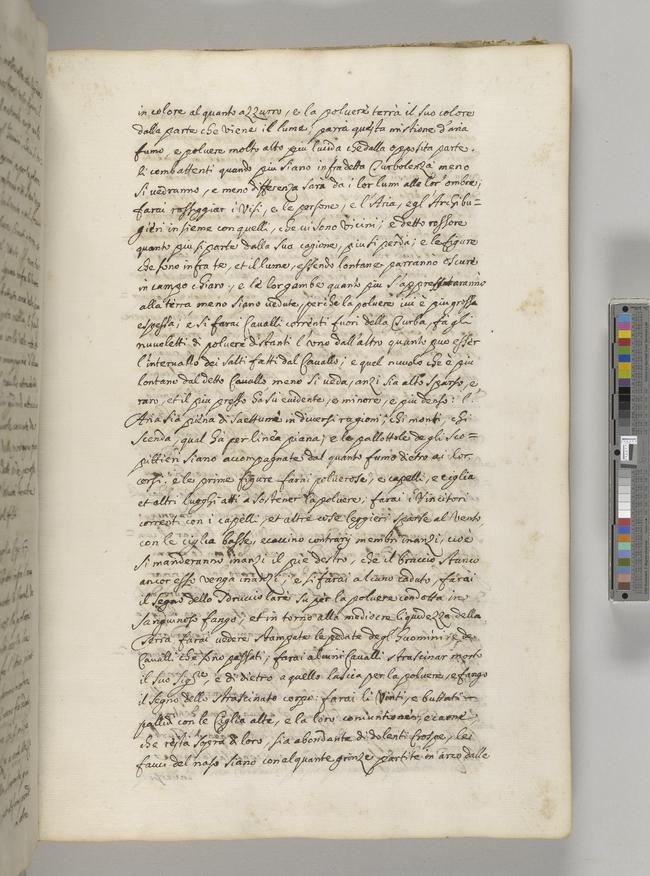 in colore al quanto azzurro, e la polvere terrà il suo colore
dalla parte che viene il lume, parrà questa mistione d'aria
fumo, e polvere molto più lucida che dalla opposita parte.
Li combattenti quando più siano infra detta Turbolenza meno
si vedranno, e meno differenza sarà da i lor lumi alle lor' ombre;
farai rosseggiar i Visi, e le persone, e l'Aria, e gl'Archibu=
gieri insieme con quelli, che vi sono vicini; e detto rossore
quanto più si parte dalla sua cagione, più si perda; e le figure
che sono infra te, et il lume, essendo lontane parranno oscure
in campo chiaro, e le lor gambe quanto più s'appressaranno
alla terra meno siano vedute, perche la polvere ivi è più grossa
e spessa; e si farai Cavalli correnti fuori della Turba, fa gli
nuvoletti di polvere distanti l'uno dall'altro quanto può esser
l'intervallo dei salti fatti dal Cavallo; e quel nuvolo che è più
lontano dal detto Cavallo meno si veda, anzi sia alto sparso, e
raro, et il più presso sia più evidente, e minore, e più denso: l'
Aria sia piena di saettume in diversi ragioni; chi monti, chi
scenda, qual sia per linea piana; e le pallottole degli sco=
pittieri siano accompagnate dal quanto fumo dietro ai lor
corsi. e le prime figure farai polverose, e capelli, e ciglia
et altri luoghi atti a sostener la polvere, farai i Vincitori
correnti con i capelli, et altre cose leggieri sparse al Vento
con le ciglia basse, e caccino contrarij membri inanzi, cioè
si manderanno inanzi il piè destro, che il braccio stanco
ancor esso venga inanzi; e si farai alcuno caduto, farai
il segno dello sdrucciolare su per la polvere condotta in
sanguinoso fango; et in torno alla mediocre liquidezza della
Terra farai vedere stampate le pedate degl'huomini, e de
Cavalli che sono passati; farai alcuni Cavalli strascinar morto
il suo Sig.re, e di dietro a quello lascia per la polvere, e fango
il segno dello strascinato corpo: farai li Vinti, e battuti
pallidi con le Ciglia alte, e la loro coniuntione, e carne,
che resta sopra di loro, sia abondante di dolenti Crespe, le
fauci del naso siano con alquante grinze partite in arco dalle